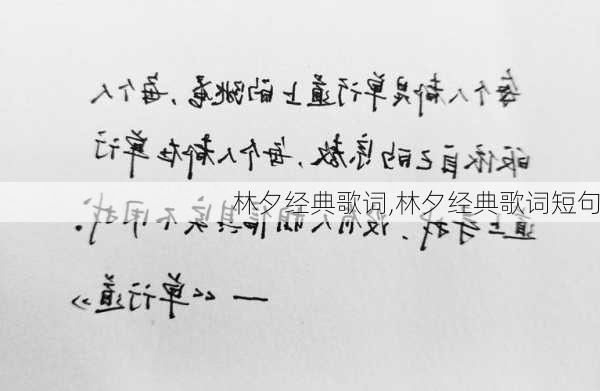 每个人都是单行道上的跳蚤,每个人
皈依自己的宗教,每个人都在单行
林夕经典歌词,林夕经典歌词短句
道上寻找,没有人相信其实不用找。
——《单行道》